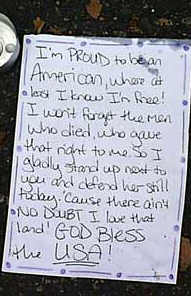 I'm PROUD to be an
American, where at
least I know I'm free!
I won't forget the men
who died, who gave
that right to me. So I
gladly stand up next to
you and defend her still
today. 'Cause there ain't
NO DOUBT I love that
land! GOD BLESS
the USA!